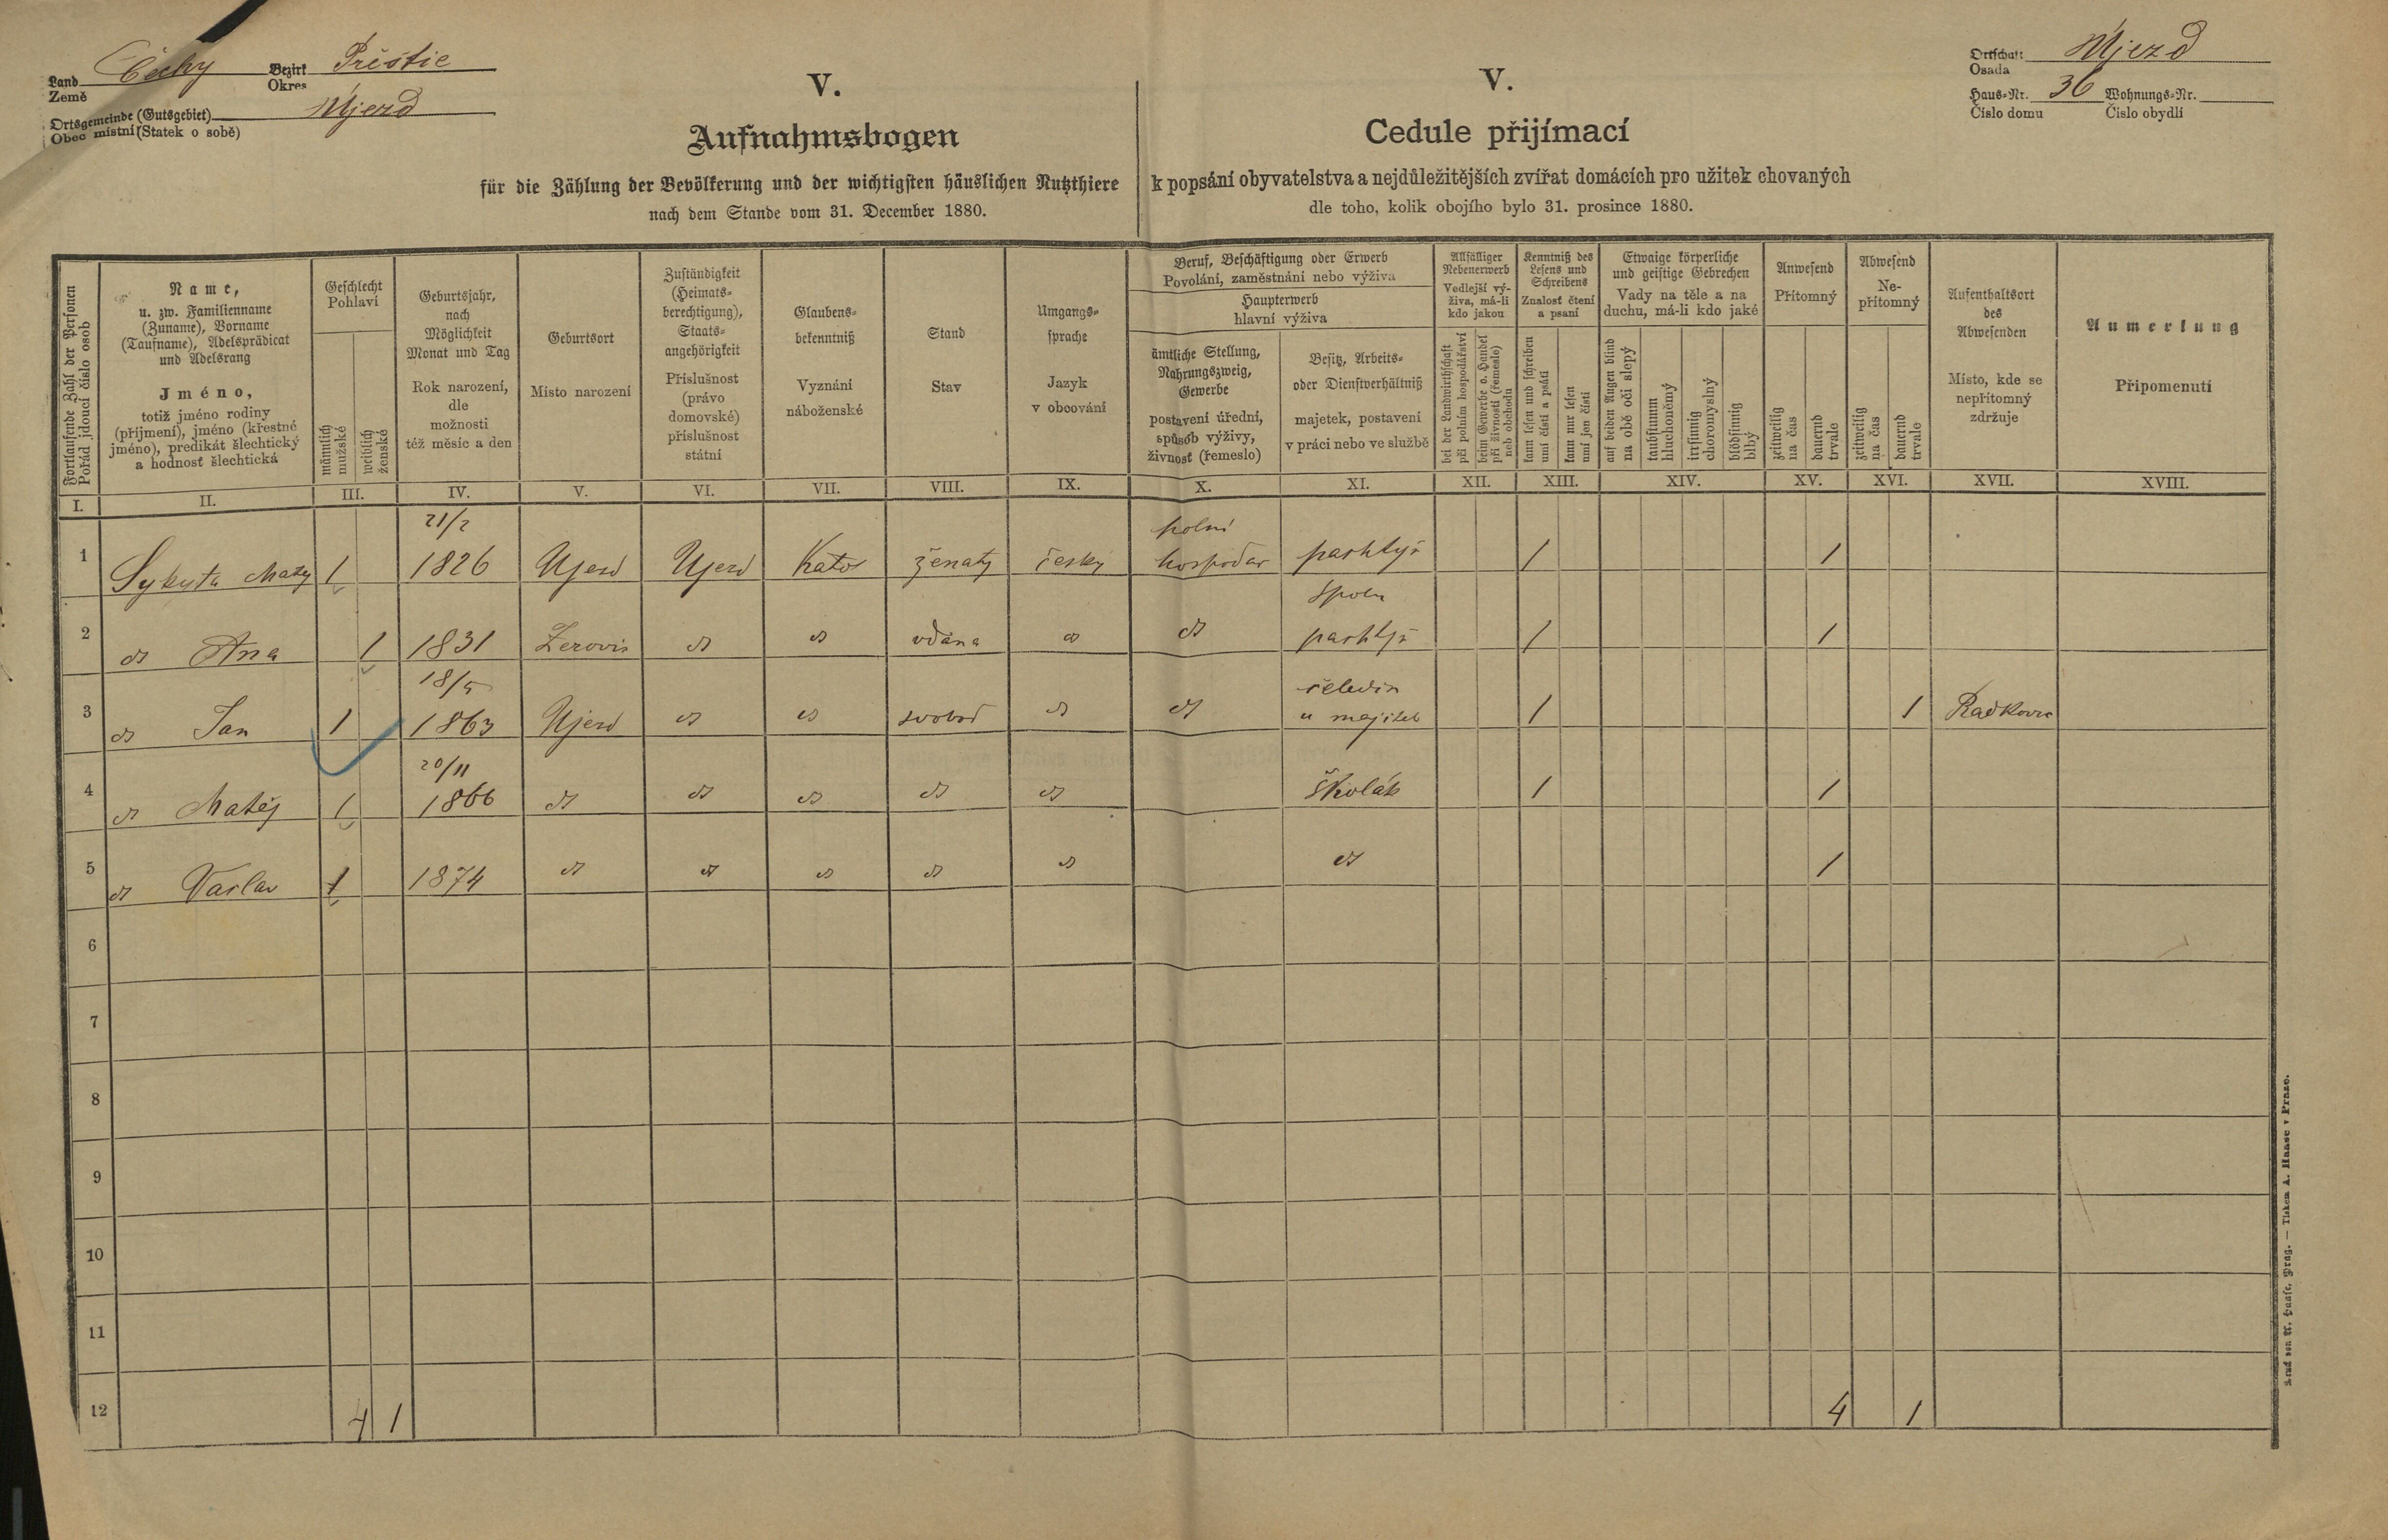 Land Země Čechy Bezirk Okres Přeštic
Ortsgemeinde (Gutsgebiet) Obec místní (Statek o sobě) Ujezd
V.
Aufnahmsbogen
für die Zählung der Bevölkerung und der wichtigsten häuslichen Nutzthiere
nach dem Stande vom 31. December 1880.
V.
Cedule přijímací
k popsání obyvatelstva a nejdůležitějších zvířat domácích pro užitek chovaných
dle toho, kolik obojího bylo 31. prosince 1880.
Ortschaft Osada Ujezd
Haus-Nr. Číslo domu 36 Wohnungs-Nr. Číslo obydlí
Fortlaufende Zahl der Personen
Pořád jdoucí číslo osob
Name,
u. zw. Familienname
(Zuname), Vorname
(Taufname), Adelsprädicat
und Adelsrang
Jméno,
totiž jméno rodiny
(příjmení), jméno (křestné
jméno), predikát šlechtický
a hodnosť šlechtická
Geschlecht
Pohlaví
männlich
mužské
weiblich
ženské
Geburtsjahr,
nach
Möglichkeit
Monat und Tag
Rok narození,
dle
možnosti
též měsíc a den
Geburtsort
Místo narození
Zuständigkeit
(Heimats-
berechtigung),
Staats-
angehörigkeit
Příslušnost
(právo
domovské)
příslušnost
státní
Glaubens-
bekenntniß
Vyznání
náboženské
Stand
Stav
Umgangs-
sprache
Jazyk
v obcování
Beruf, Beschäftigung oder Erwerb
Povolání, zaměstnání nebo výživa
Haupterwerb
hlavní výživa
ämtliche Stellung,
Nahrungszweig,
Gewerbe
postavení úřední,
spůsob výživy,
živnosť (řemeslo)
Besitz, Arbeits-
oder Dienstverhältniß
majetek, postavení
v práci nebo ve službě
Allfälliger
Nebenerwerb
Vedlejší vý-
živa, má-li
kdo jakou
bei der Landwirthschaft
při polním hospodářství
beim Gewerbe o. Handel
při živnosti (řemeslo)
neb obchodu
Kenntniß des
Lesens und
Schreibens
Znalosť čtení
a psaní
kann lesen und schreiben
umí čísti a psáti
kann nur lesen
umí jen čísti
Etwaige körperliche
und geistige Gebrechen
Vady na těle a na
duchu, má-li kdo jaké
auf beiden Augen blind
na obě oči slepý
taubstumm
hluchoněmý
irrsinnig
choromyslný
blödsinnig
blbý
Anwesend
Přítomný
zeitweilig
na čas
dauernd
trvale
Abwesend
Ne-
přítomný
zeitweilig
na čas
dauernd
trvale
Aufenthaltsort
des
Abwesenden
Místo, kde se
nepřítomný
zdržuje
Anmerkung
Připomenutí
I. II. III. IV. V. VI. VII. VIII. IX. X. XI. XII. XIII. XIV. XV. XVI. XVII. XVIII.
21/2 polní
1 Sykyta Matěj 1 1826 Ujezd Ujezd Katol ženatý český hospodar 1 1
spolu
2 Ana 1 1831 vdana 1 1
18/5 čeledin
3 Jan 1 1863 Ujezd svobod u majitel 1 1 Radkovic
20/11
4 Matěj 1 1866 školák 1 1
5 Vaclav 1 1874 1
6
7
8
9
10
11
12 4 1 4 1
Druck von A. Haase, Prag. — Tiskem A. Haase v Praze.